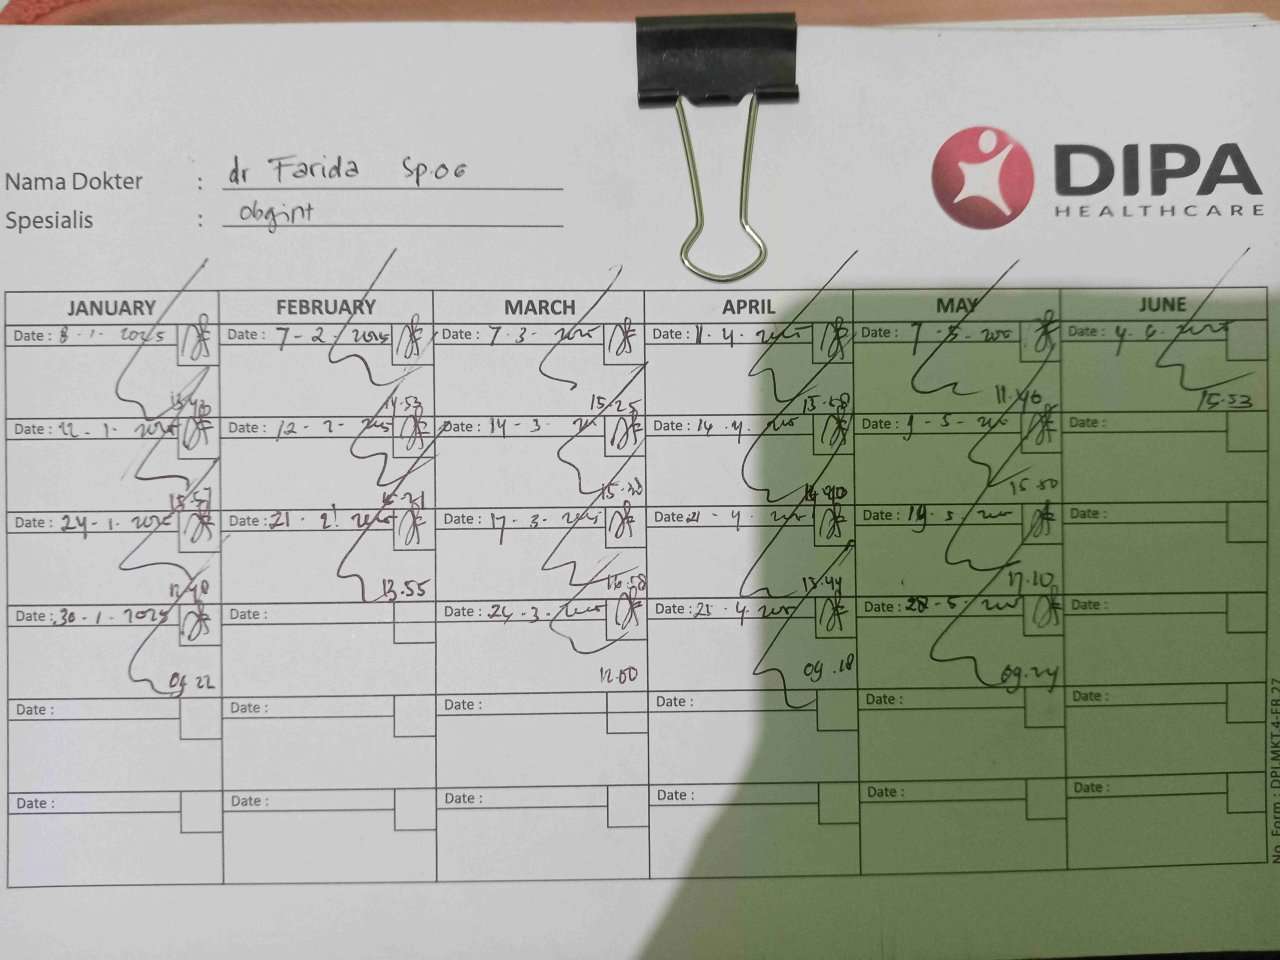 DIPA
HEALTHCARE
Nama Dokter : dr Farida Sp.OG
Spesialis : Obgint
JANUARY FEBRUARY MARCH APRIL MAY JUNE
Date : 8-1-2025 Date : 7-2-2025 Date : 7-3- Date : 11-4- Date : 7-5- Date : 4-6-
14.53 15.25 15.58 11.46 15.53
Date : 22-1- Date : 12-2- Date : 14-3- Date : 14-4- Date : 9-5- Date :
15.57 15.38 14.40 15.50
Date : 24-1- Date : 21-2- Date : 17-3- Date : 21-4- Date : 19-5- Date :
13.55 16.58 13.44 17.10
Date : 30-1-2025 Date : Date : 24-3- Date : 25-4- Date : 28-5- Date :
09.22 12.00 09.18 09.24
Date : Date : Date : Date : Date : Date :
Date : Date : Date : Date : Date : Date :
No. Form : DPI.MKT.4-FR.27